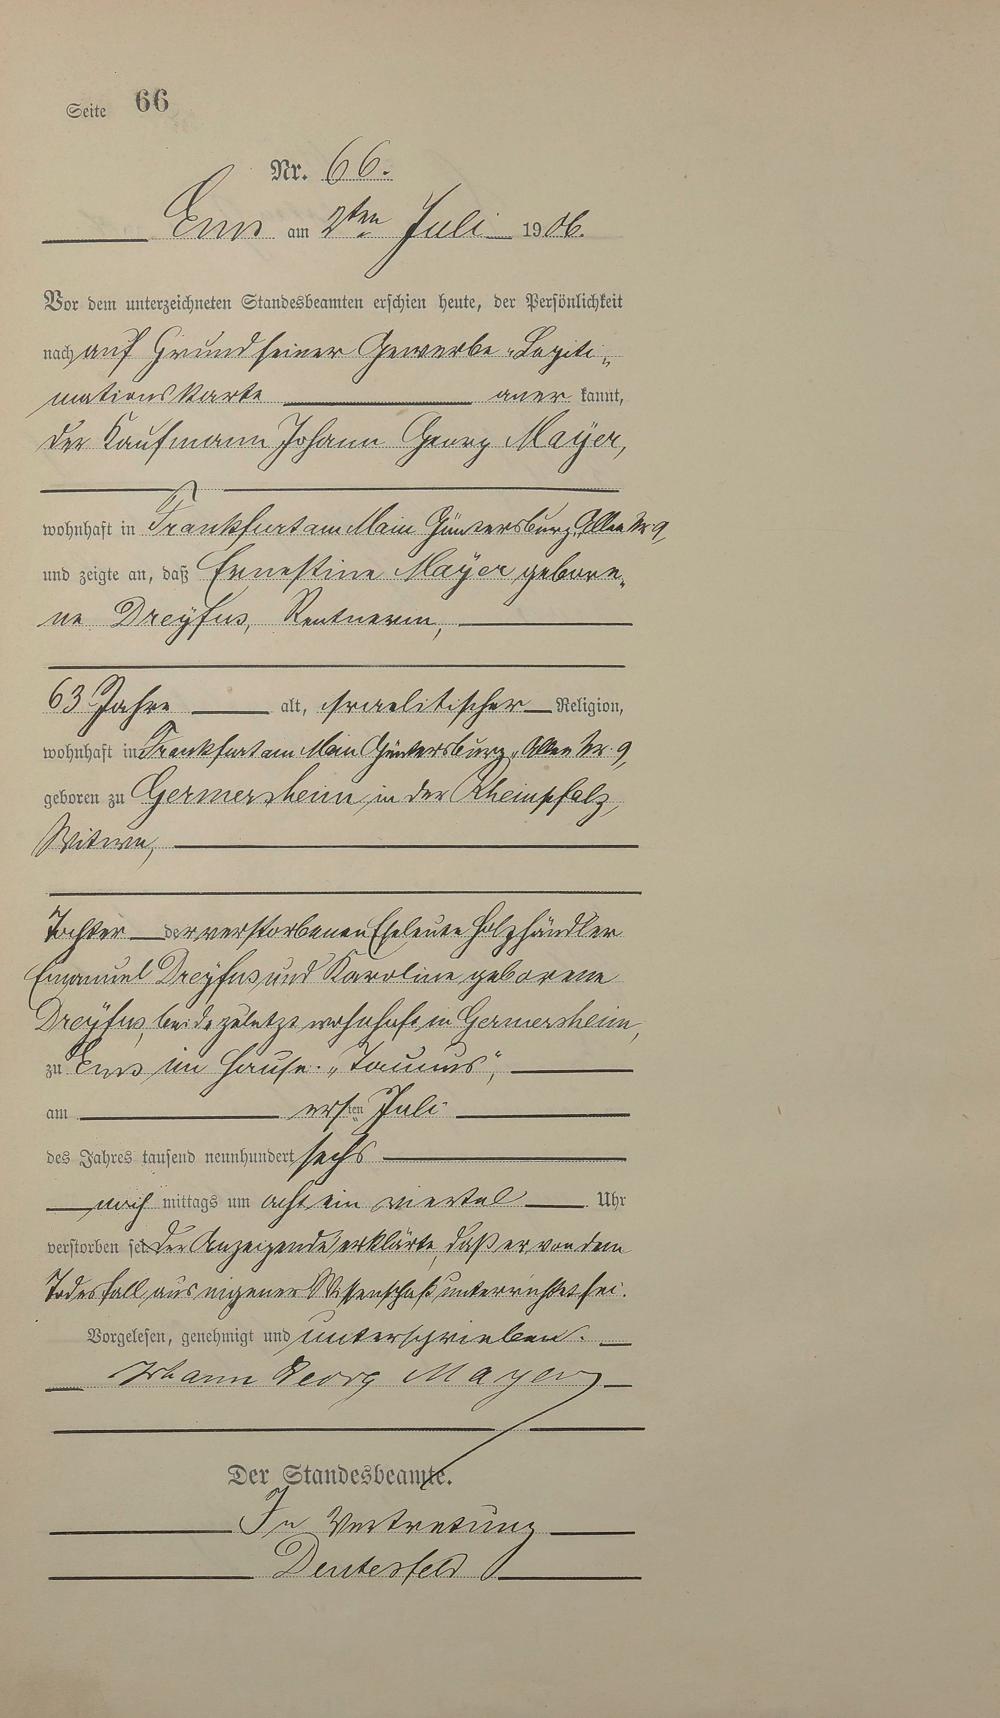 Seite 66
Nr. 66.
Ems am 2ten Juli 1906.
Vor dem unterzeichneten Standesbeamten erschien heute, der Persönlichkeit
nach auf Grund seiner Gewerbe-Legiti-
mationskarte aner kannt,
der Kaufmann Johann Georg Mayer,
wohnhaft in Frankfurt am Main Güntersburg-Allee Nr 9,
und zeigte an, daß Ernestine Mayer gebore-
ne Dreyfus, Rentnerin,
63 Jahre alt, israelitischer Religion,
wohnhaft in Frankfurt am Main Güntersburg-Allee Nr. 9,
geboren zu Germersheim in der Rheinpfalz,
Witwe,
Tochter der verstorbenen Eheleute Holzhändler
Emanuel Dreyfus und Karoline geborene
Dreyfus, beide zuletzt wohnhaft in Germersheim,
zu Ems im Hause „Taunus“,
am ersten Juli
des Jahres tausend neunhundert sechs
nach mittags um acht ein viertel Uhr
verstorben sei. Der Anzeigende erklärte, daß er von dem
Todesfall aus eigener Wissenschaft unterrichtet sei.
Vorgelesen, genehmigt und unterschrieben.
Johann Georg Mayer
Der Standesbeamte.
In Vertretung
Deutesfeld